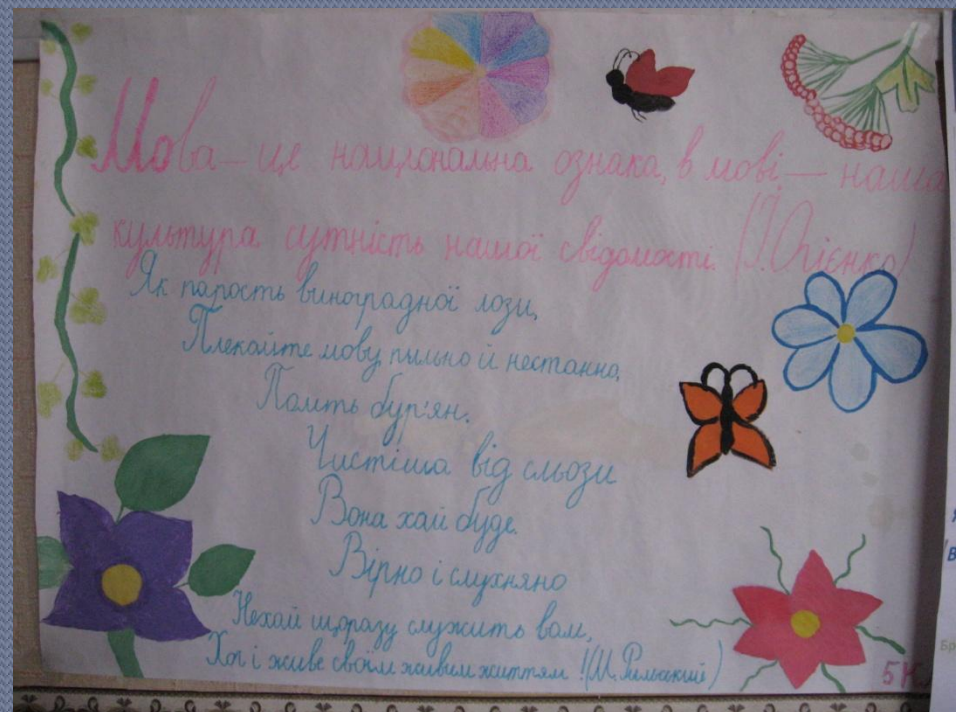 Мова — це національна ознака, в мові — наша
культура сутність нашої свідомості. (І. Огієнко)
Як парость виноградної лози,
Плекайте мову пильно й нестанно,
Політь бур'ян.
Чистіша від сльози
Вона хай буде.
Вірно і слухняно
Нехай щоразу служить вам,
Хоч і живе своїм живим життям! (М. Рильський)
5К